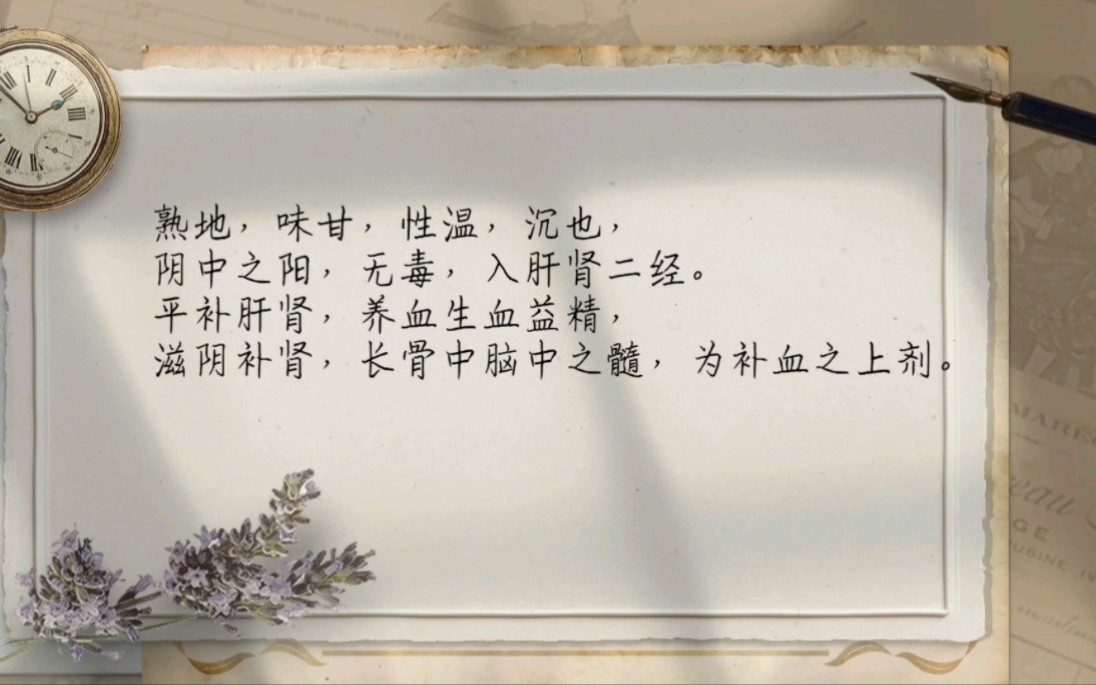 熟地，味甘，性温，沉也，
阴中之阳，无毒，入肝肾二经。
平补肝肾，养血生血益精，
滋阴补肾，长骨中脑中之髓，为补血之上剂。